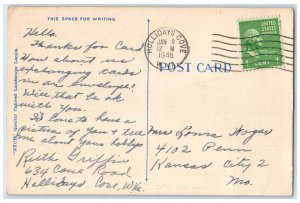 THIS SPACE FOR WRITING
Hello.
Thanks for Card
How about us
exchanging cards
in an envelope?
Will that be ok
with you.
I'd love to have a
picture of you & tell
me about your hobbys
Ruth Griffin
634 Cove Road
Hollidays Cove, W.Va.
HOLLIDAYS COVE
JAN 8
12 M
1946
W. VA.
UNITED STATES
POSTAGE
1 CENT
POST CARD
Mrs Lorna Hogan
4102 Penn
Kansas City 2
Mo.